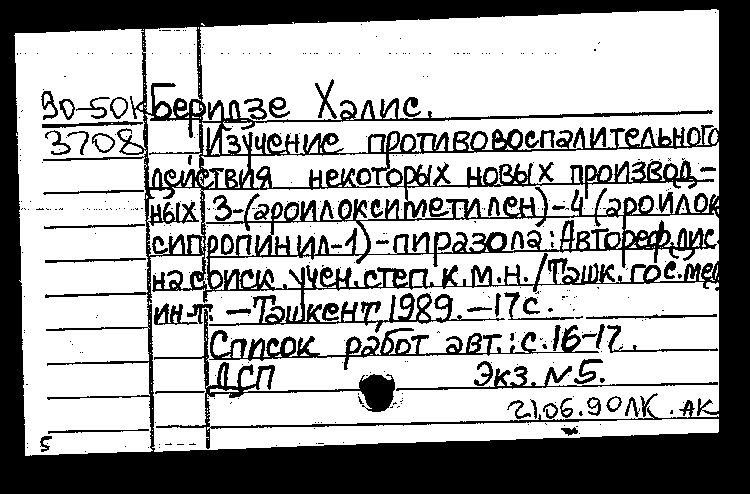 90-50к Беридзе Халис.
3708 Изучение противовоспалительного
действия некоторых новых производ-
ных 3-(ароилоксиметилен)-4(ароилок
сипропинил-1)-пиразола: Автореф. дис.
на соиск. учен. степ. к.м.н./Ташк. гос. мед
ин-т. -Ташкент, 1989. -17с.
Список работ авт.: с.16-17.
ДСП Экз. N5.
21.06.90 ЛК. АК
5